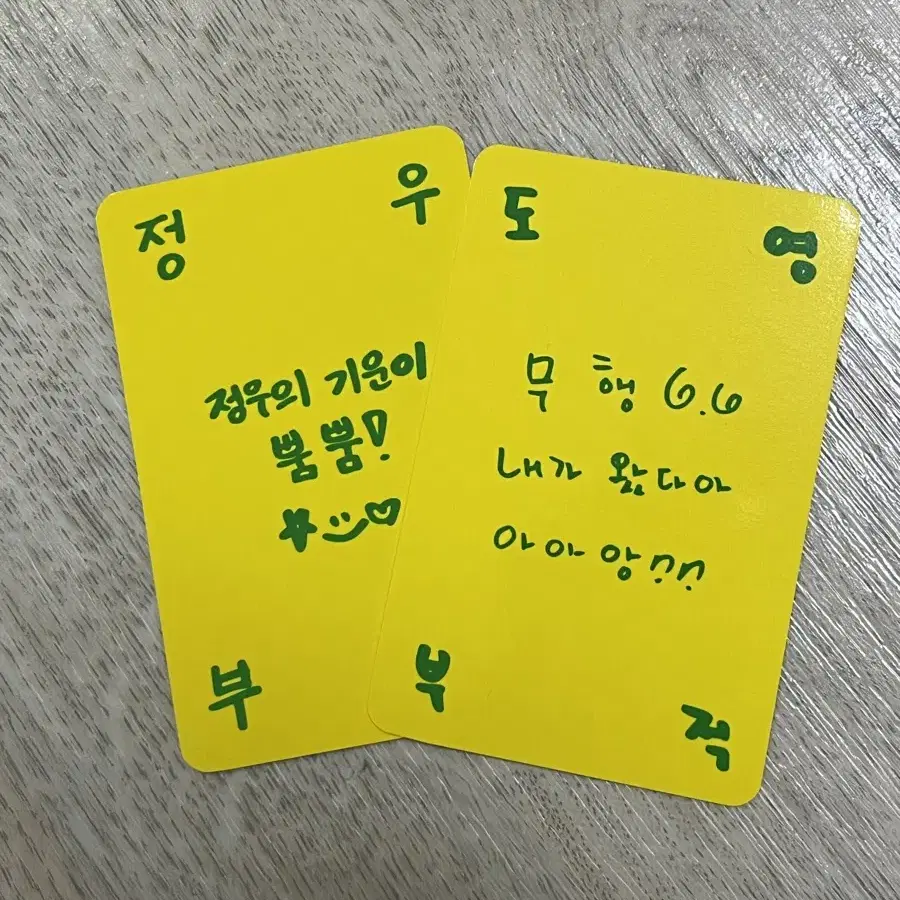 정 우
정우의 기운이
뿜뿜!
부
도 영
무 행 6.6
내가 왔다아
아아앙
부 적